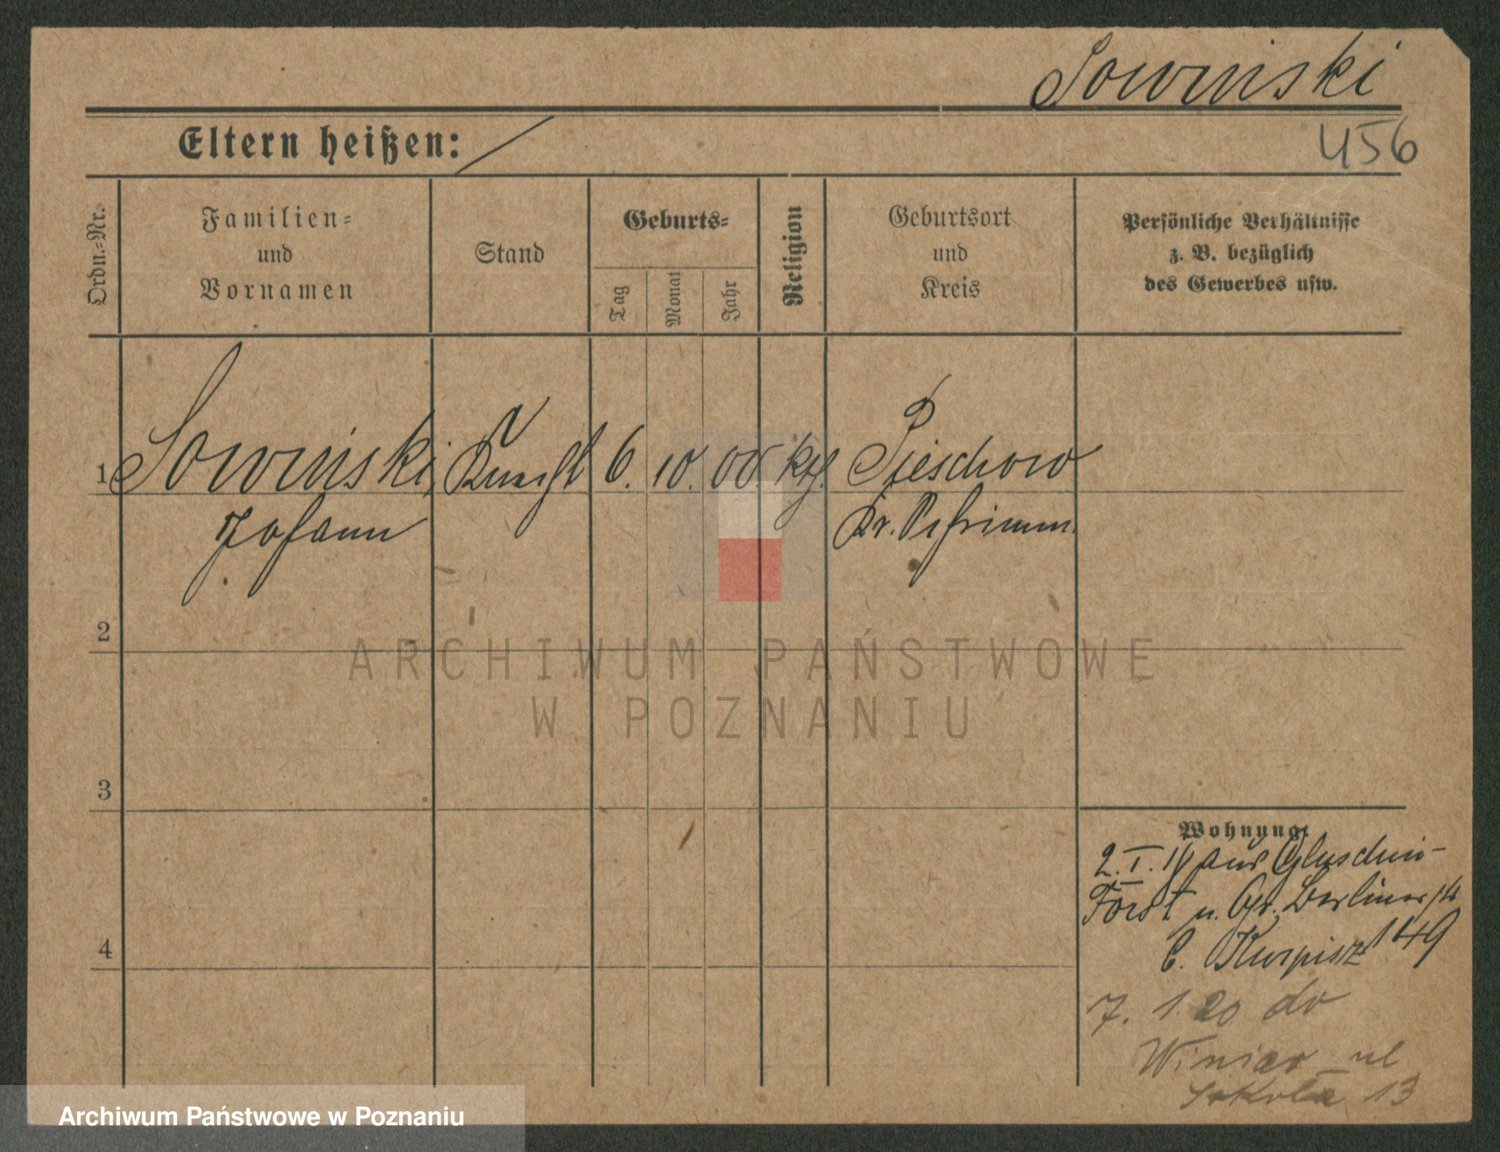 Sowinski
456
Eltern heißen: /
Ordn.-Nr.
Familien-
und
Vornamen
Stand
Geburts-
Tag
Monat
Jahr
Religion
Geburtsort
und
Kreis
Persönliche Verhältnisse
z. B. bezüglich
des Gewerbes usw.
1 Sowinski, Knecht 6. 10. 00. kth. Pieschowo
Johann Kr. Schrimm.
2
ARCHIWUM PAŃSTWOWE
W POZNANIU
3
Wohnung:
2. I. 19 aus Gluschin-
Forst n. Gr. Berlinerstr
149
4
b. Kurpisz
7. 1. 20 do
Winiar ul
Sokoła 13
Archiwum Państwowe w Poznaniu